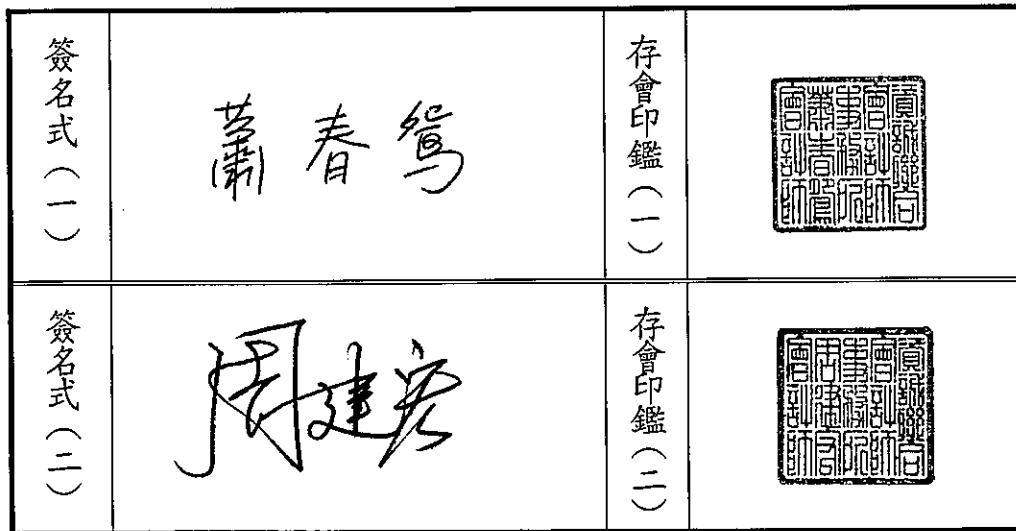 簽名式(一)
蕭春鴛
存會印鑑(一)
資誠聯合
會計師
事務所
蕭春鴛
會計師
簽名式(二)
周建宏
存會印鑑(二)
資誠聯合
會計師
事務所
周建宏
會計師